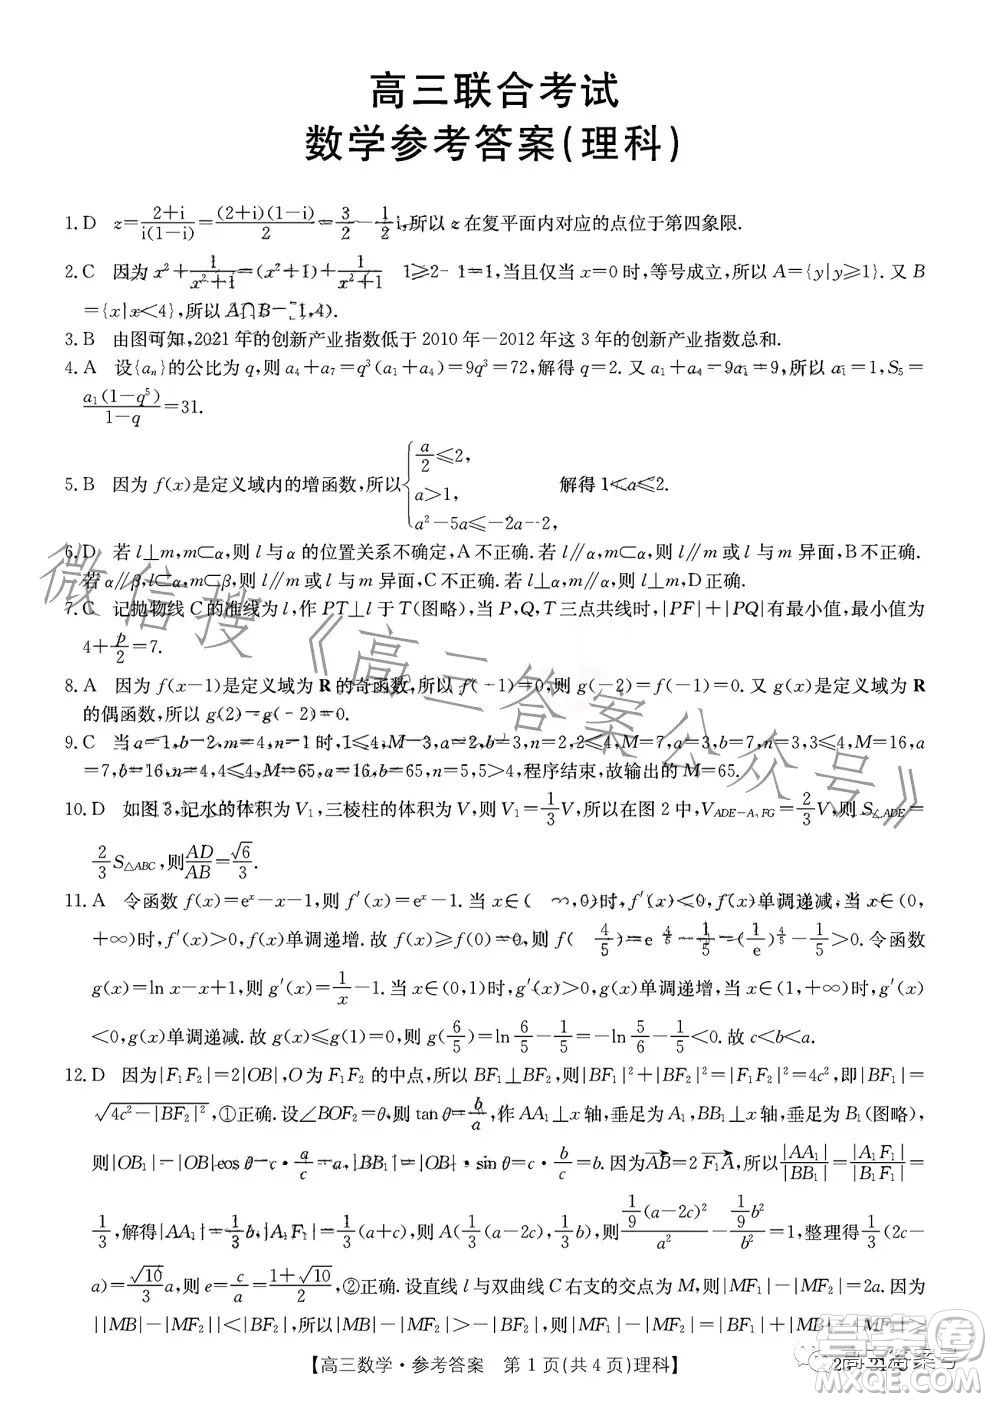 高三联合考试
数学参考答案(理科)
1. D z=\frac{2+i}{i(1-i)}=\frac{(2+i)(1-i)}{2}=\frac{3}{2}-\frac{1}{2}i,所以 z 在复平面内对应的点位于第四象限.
2. C 因为 x²+\frac{1}{x²+1}=(x²+1)+\frac{1}{x²+1} 1≥2-1=1,当且仅当 x=0 时,等号成立,所以 A={y|y≥1}. 又 B
={x|x<4},所以 A∩B=[1,4).
3. B 由图可知,2021 年的创新产业指数低于 2010 年—2012 年这 3 年的创新产业指数总和.
4. A 设{aₙ}的公比为 q,则 a₄+a₇=q³(a₁+a₄)=9q³=72,解得 q=2. 又 a₁+a₄=9a₁=9,所以 a₁=1,S₅=
\frac{a₁(1-q⁵)}{1-q}=31.
5. B 因为 f(x)是定义域内的增函数,所以{ \frac{a}{2}≤2, a>1, a²-5a≤-2a-2, 解得 1<a≤2.
6. D 若 l⊥m,m⊂α,则 l 与 α 的位置关系不确定,A 不正确. 若 l∥α,m⊂α,则 l∥m 或 l 与 m 异面,B 不正确.
若 α∥β,l⊂α,m⊂β,则 l∥m 或 l 与 m 异面,C 不正确.
7. C 记抛物线 C 的准线为 l,作 PT⊥l 于 T(图略),当 P,Q,T 三点共线时,|PF|+|PQ|有最小值,最小值为
4+\frac{p}{2}=7.
8. A 因为 f(x-1)是定义域为 R 的奇函数,所以 f(-1)=0,则 g(-2)=f(-1)=0. 又 g(x)是定义域为 R
的偶函数,所以 g(2)=g(-2)=0.
9. C 当 a=1,b=2,m=4,n=1 时,1≤4,M=3,a=2,b=3,n=2,2≤4,M=7,a=3,b=7,n=3,3≤4,M=16,a
=7,b=16,n=4,4≤4,M=65,a=16,b=65,n=5,5>4,程序结束,故输出的 M=65.
10. D 如图 3,记水的体积为 V₁,三棱柱的体积为 V,则 V₁=\frac{1}{3}V,所以在图 2 中,V=\frac{2}{3}V,则 S△ADE=
\frac{2}{3}S△ABC,则\frac{AD}{AB}=\frac{√6}{3}.
11. A 令函数 f(x)=eˣ-x-1,则 f′(x)=eˣ-1. 当 x∈(-∞,0)时,f′(x)<0,f(x)单调递减,当 x∈(0,
+∞)时,f′(x)>0,f(x)单调递增. 故 f(x)≥f(0)=0,则 f( \frac{4}{5})=e^{-\frac{4}{5}}-\frac{1}{5}=(\frac{1}{e})^{\frac{4}{5}}-\frac{1}{5}>0. 令函数
g(x)=ln x-x+1,则 g′(x)=\frac{1}{x}-1. 当 x∈(0,1)时,g′(x)>0,g(x)单调递增,当 x∈(1,+∞)时,g′(x)
<0,g(x)单调递减. 故 g(x)≤g(1)=0,则 g(\frac{6}{5})=ln \frac{6}{5}-\frac{1}{5}=-ln\frac{5}{6}-\frac{1}{5}<0. 故 c<b<a.
12. D 因为|F₁F₂|=2|OB|,O 为 F₁F₂ 的中点,所以 BF₁⊥BF₂,所以|BF₁|²+|BF₂|²=|F₁F₂|²=4c²,即|BF₁|=
\sqrt{4c²-|BF₂|²},①正确. 设∠BOF₂=θ,则 tan θ=\frac{b}{a},作 AA₁⊥x 轴,垂足为 A₁,BB₁⊥x 轴,垂足为 B₁(图略),
则|OB₁|=|OB|cos θ=c·\frac{a}{c}=a,|BB₁|=|OB|·sin θ=c·\frac{b}{c}=b. 因为\vec{AB}=2\vec{F₁A},所以\frac{|AA₁|}{|BB₁|}=\frac{|A₁F₁|}{|B₁F₁|}=
\frac{1}{3},解得|AA₁|=\frac{1}{3}b,|A₁F₁|=\frac{1}{3}(a+c),则 A(\frac{1}{3}(a-2c),\frac{1}{3}b),则\frac{\frac{1}{9}(a-2c)²}{a²}-\frac{\frac{1}{9}b²}{b²}=1,整理得\frac{1}{3}(2c-
a)=\frac{√10}{3}a,则 e=\frac{c}{a}=\frac{1+√10}{2},②正确. 设直线 l 与双曲线 C 右支的交点为 M,则|MF₁|-|MF₂|=2a. 因为
||MB|-|MF₂||<|BF₂|,所以|MB|-|MF₂|>-|BF₂|,则|MF₁|-|MF₂|=|MB|+|BF₁|-|MF₂|>
【高三数学·参考答案 第 1 页(共 4 页)理科】
微信搜《高三答案公众号》